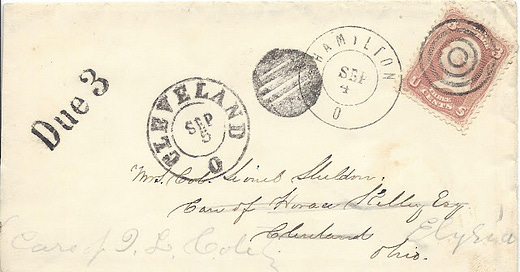 HAMILTON
SEP
4
O
Due 3
CLEVELAND
SEP
5
O
Mrs. Col. Lionel Sheldon.
Care of Horace Kelley Esq
Cleveland
Elyria
Ohio.
Care of
CENTS